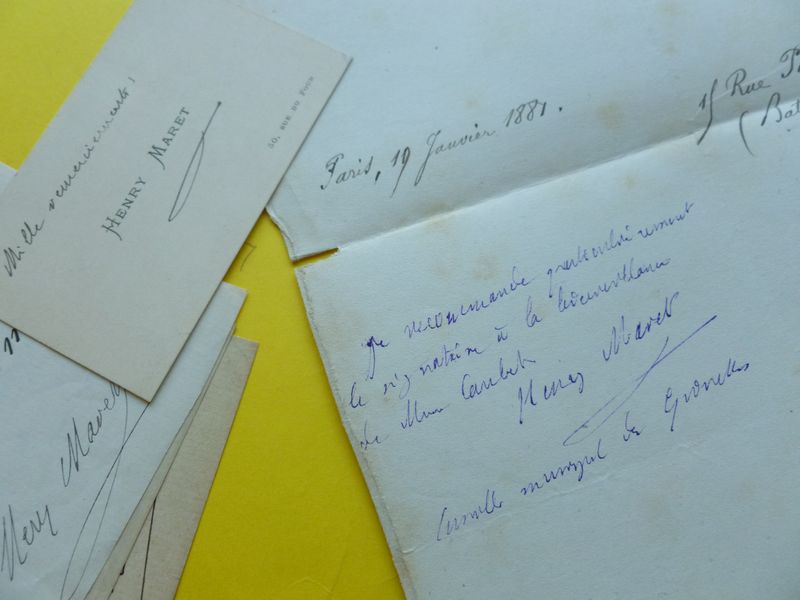 Mille remerciements!
HENRY MARET
50, RUE DU FOUR
Paris, 19 Janvier 1881.
15 Rue
(Bat
Je recommande particulièrement
le signataire à la bienveillance
de Mr Caubet
Henry Maret
Conseiller municipal de Grenelle
Henry Maret